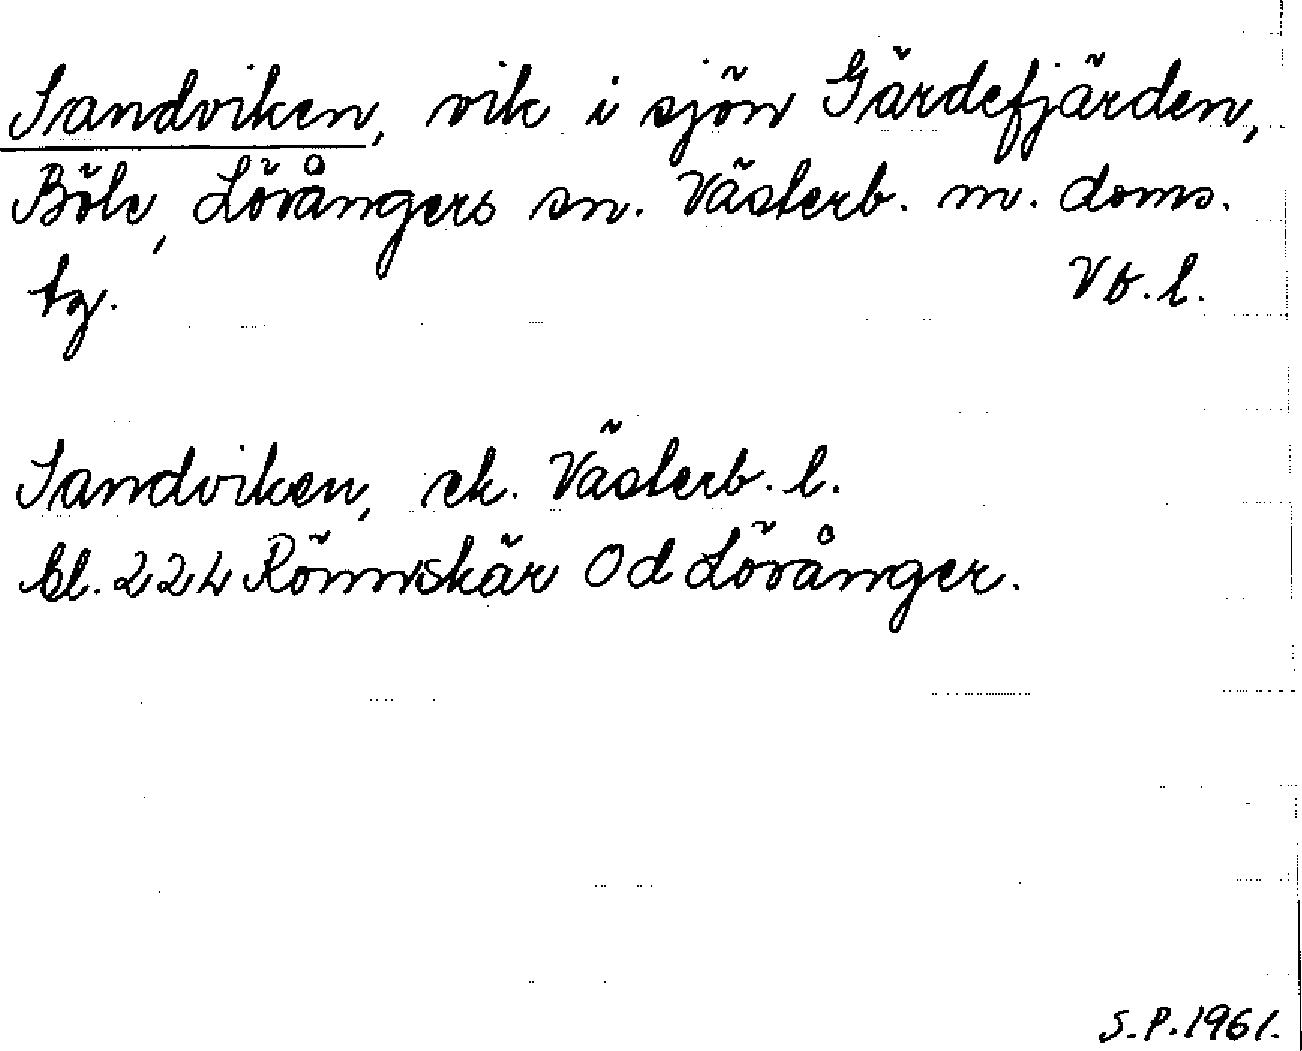 Sandviken, vik i sjön Gärdefjärden,
Böle, Lövångers sn. Västerb. m. doms.
tg. Vb. l.
Sandviken, ek. Västerb. l.
bl. 224 Rönnskär Od Lövånger.
S.P. 1961.